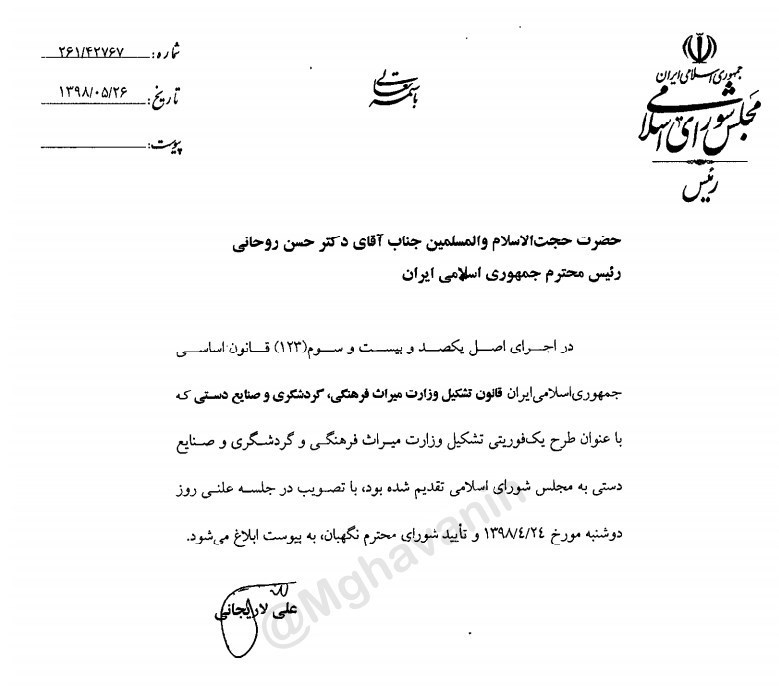 جمهوری اسلامی ایران
مجلس شورای اسلامی
رئیس
باسمه تعالی
شماره: ۲۶۱/۴۲۷۶۷
تاریخ: ۱۳۹۸/۰۵/۲۶
پیوست:
حضرت حجت‌الاسلام والمسلمین جناب آقای دکتر حسن روحانی
رئیس محترم جمهوری اسلامی ایران
در اجرای اصل یکصد و بیست و سوم(۱۲۳) قانون اساسی
جمهوری‌اسلامی‌ایران قانون تشکیل وزارت میراث فرهنگی، گردشگری و صنایع دستی که
با عنوان طرح یک‌فوریتی تشکیل وزارت میراث فرهنگی و گردشگری و صنایع
دستی به مجلس شورای اسلامی تقدیم شده بود، با تصویب در جلسه علنی روز
دوشنبه مورخ ۱۳۹۸/٤/۲٤ و تأیید شورای محترم نگهبان، به پیوست ابلاغ می‌شود.
علی لاریجانی
@Mghavanin